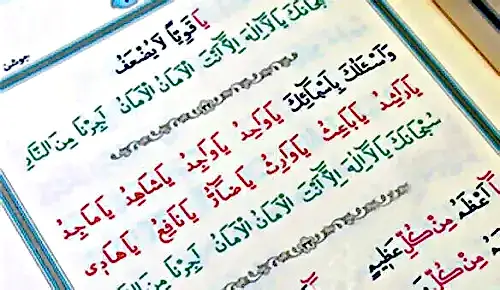 جوشن
يَا قَوِيًّا لَا يُضْعَفُ
سُبْحَانَكَ يَا لَآ اِلٰهَ اِلَّا اَنْتَ الْاَمَانُ الْاَمَانُ اَجِرْنَا مِنَ النَّارِ
وَاَسْئَلُكَ بِاَسْمَآئِكَ يَا وَاحِدُ يَا وَاجِدُ يَا شَاهِدُ يَا مَاجِدُ
يَا رَاشِدُ يَا بَاعِثُ يَا وَارِثُ يَا ضَآرُّ يَا نَافِعُ يَا هَادِى
سُبْحَانَكَ يَا لَآ اِلٰهَ اِلَّا اَنْتَ الْاَمَانُ الْاَمَانُ اَجِرْنَا مِنَ النَّارِ
اَعْظَمُ مِنْ كُلِّ عَظِيمٍ
مِنْ كُلِّ